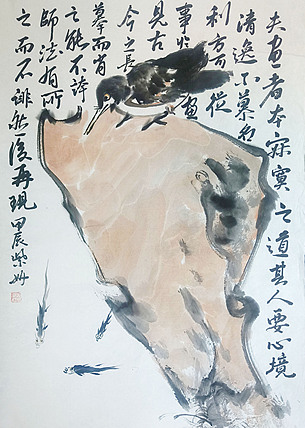 夫畫者本寂寞之道其人要心境
清逸不慕名
利方可從
事於畫
見古
今之長
摹而肖
之能不誇
師法有所
之而不誹然後再現 甲辰紫